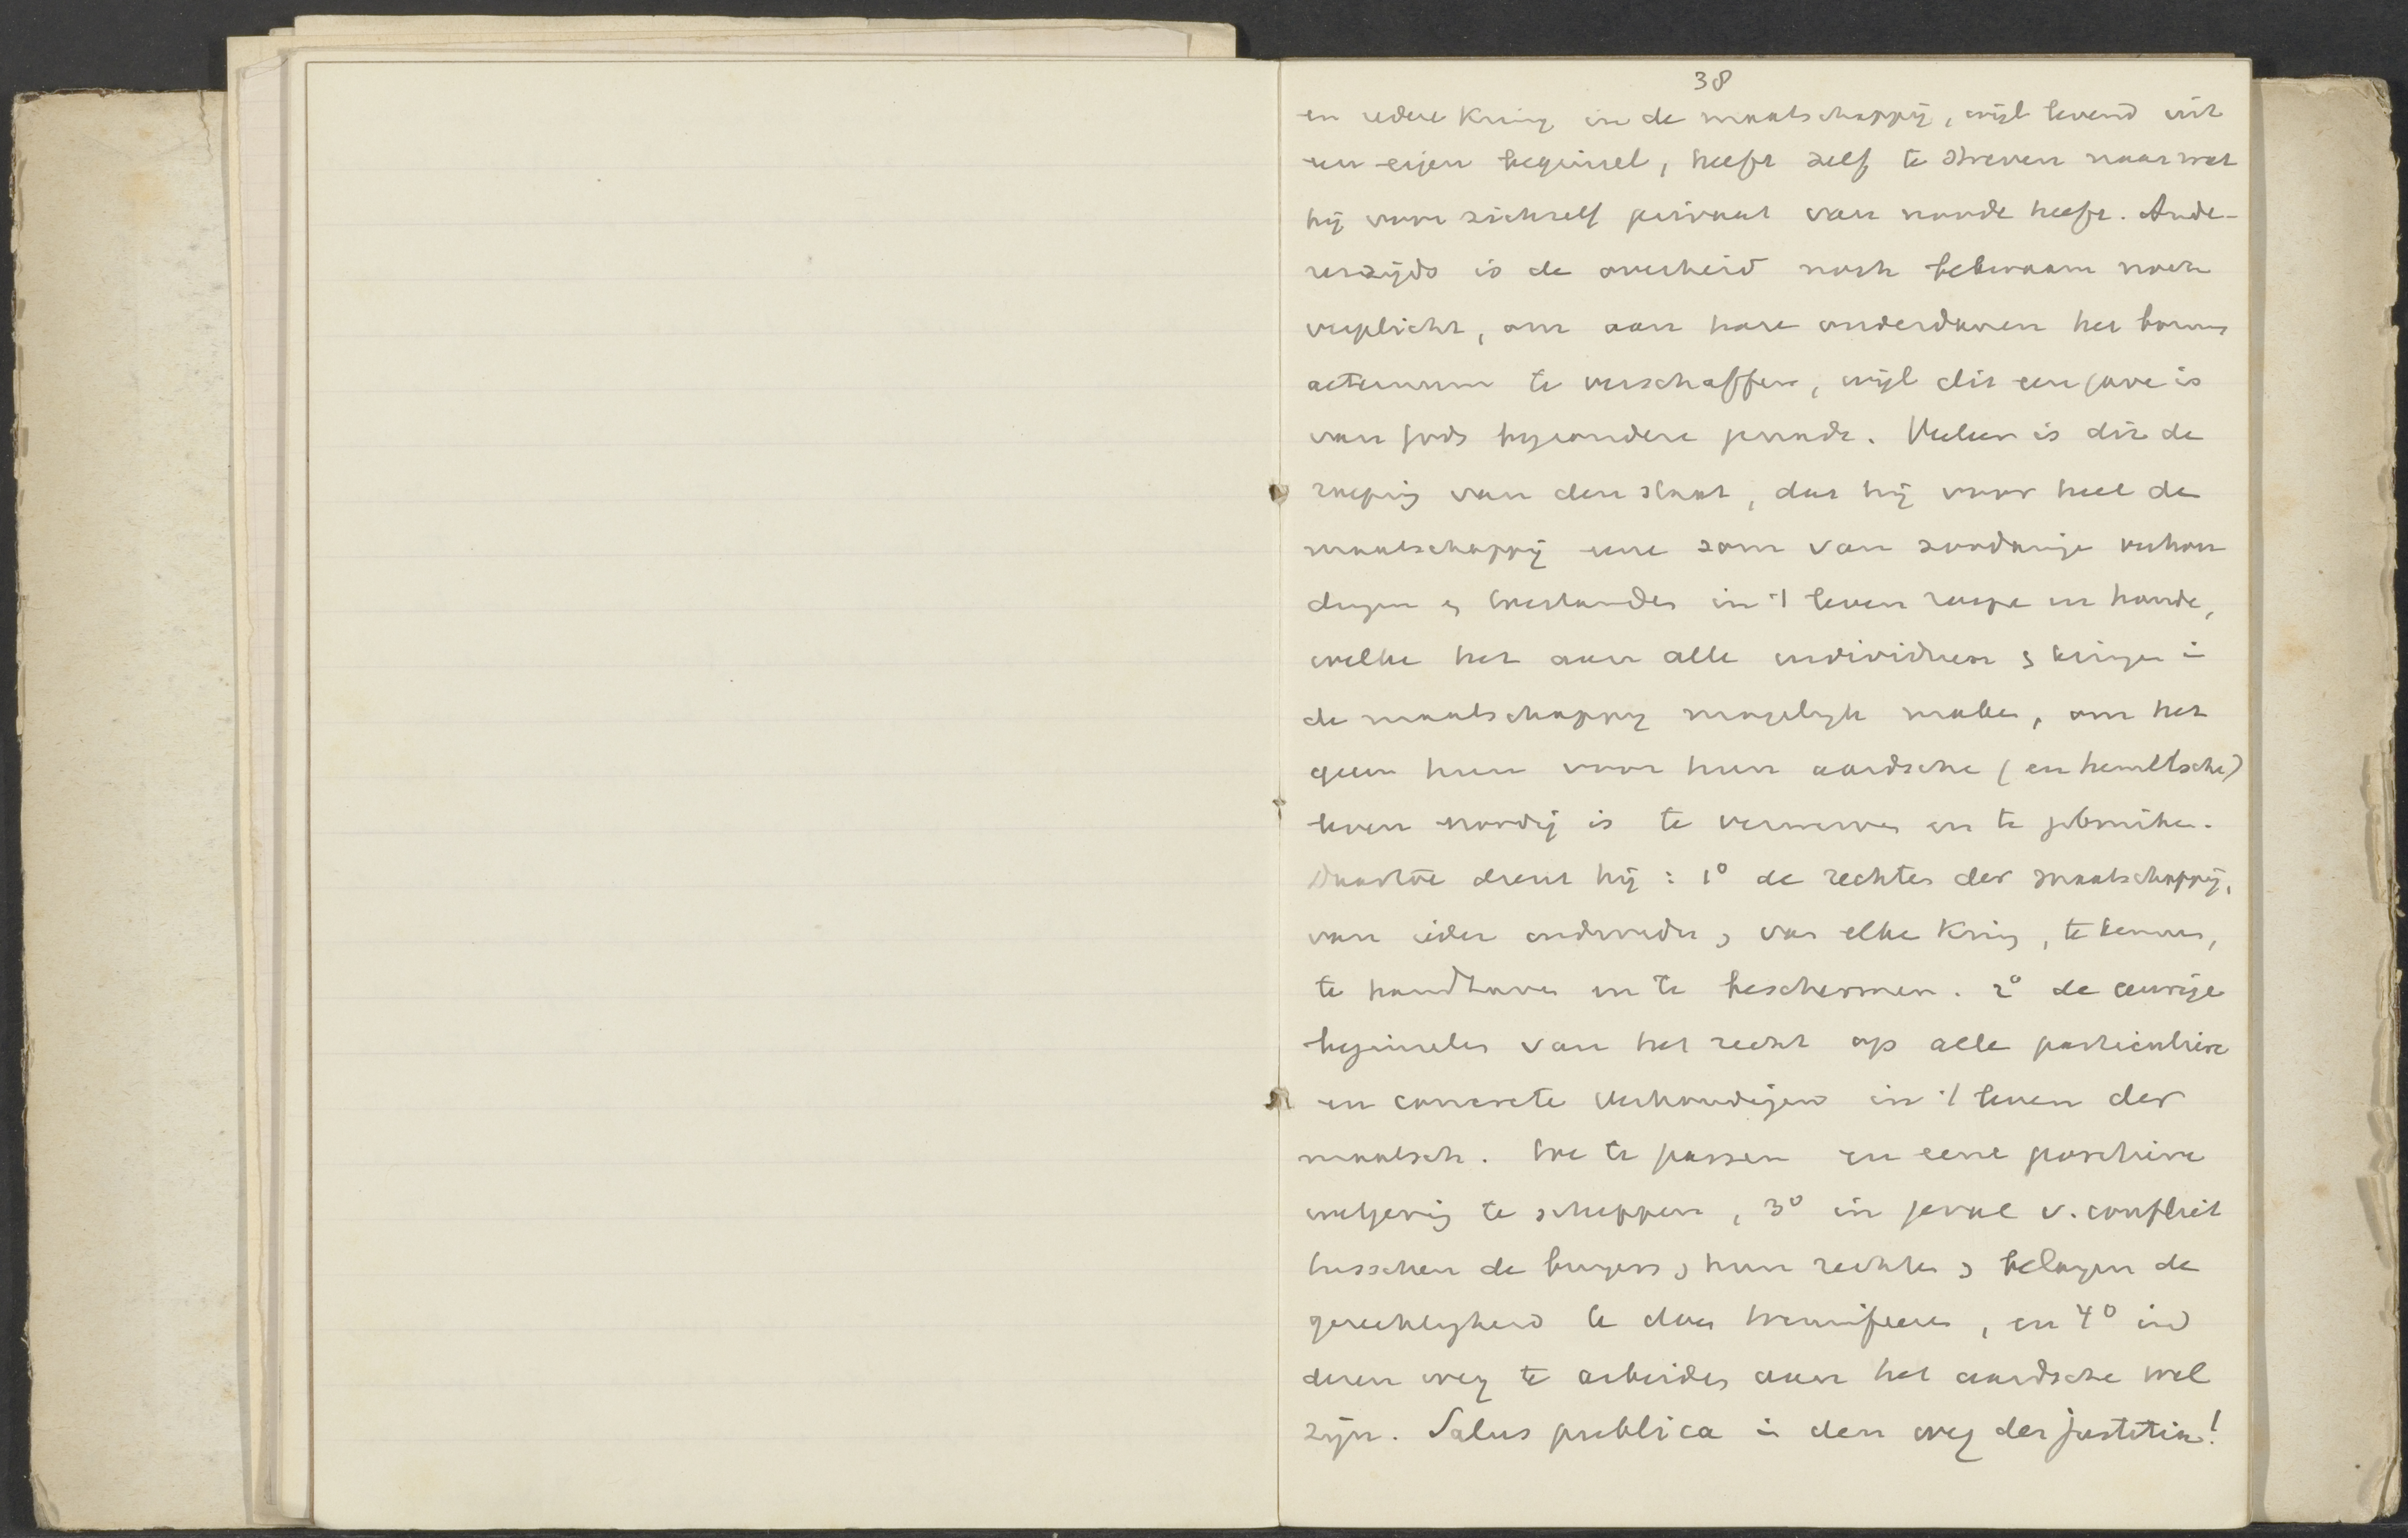 38
en iedere kring in de maatschappij, wijl levend uit
een eigen beginsel, heeft zelf te streven naar wat
hij voor zichzelf privaat van noode heeft. Ande-
rerzijds is de overheid noch bekwaam noch
verplicht, om aan hare onderdanen het bonum
aeternum te verschaffen, wijl dit een gave is
van Gods byzondere genade. Veeleer is dit de
roeping van den staat, dat hij voor heel de
maatschappij eene som van zoodanige verhou
dingen & toestanden in 't leven roepe en houde,
welke het aan alle individuen & kringen in
de maatschappij mogelijk maken, om het
geen hun voor hun aardsche (en hemelsche)
leven noodig is te verwerven en te gebruiken.
Daartoe dient hij: 1° de rechten der maatschappij,
van ieder individu & van elke kring, te kennen,
te handhaven en te beschermen. 2° de eeuwige
beginselen van het recht op alle particuliere
en concrete verhoudingen in 't leven der
maatsch. toe te passen en eene positieve
wetgeving te scheppen, 3° in geval v. conflict
tusschen de burgers & hun rechten & belangen de
gerechtigheid te doen triumfeeren, en 4° in
dezen weg te arbeiden aan het aardsche wel
zijn. Salus publica in den weg der justitia!